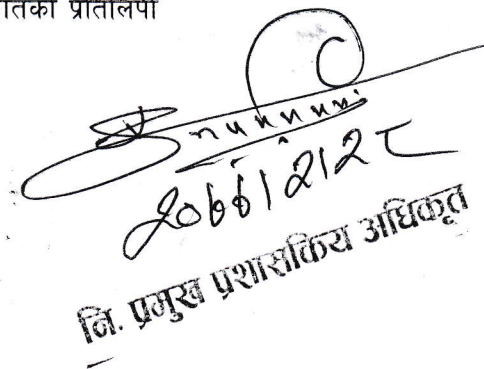 प्रतिलिपी
२०७७।२।२८
नि. प्रमुख प्रशासकिय अधिकृत